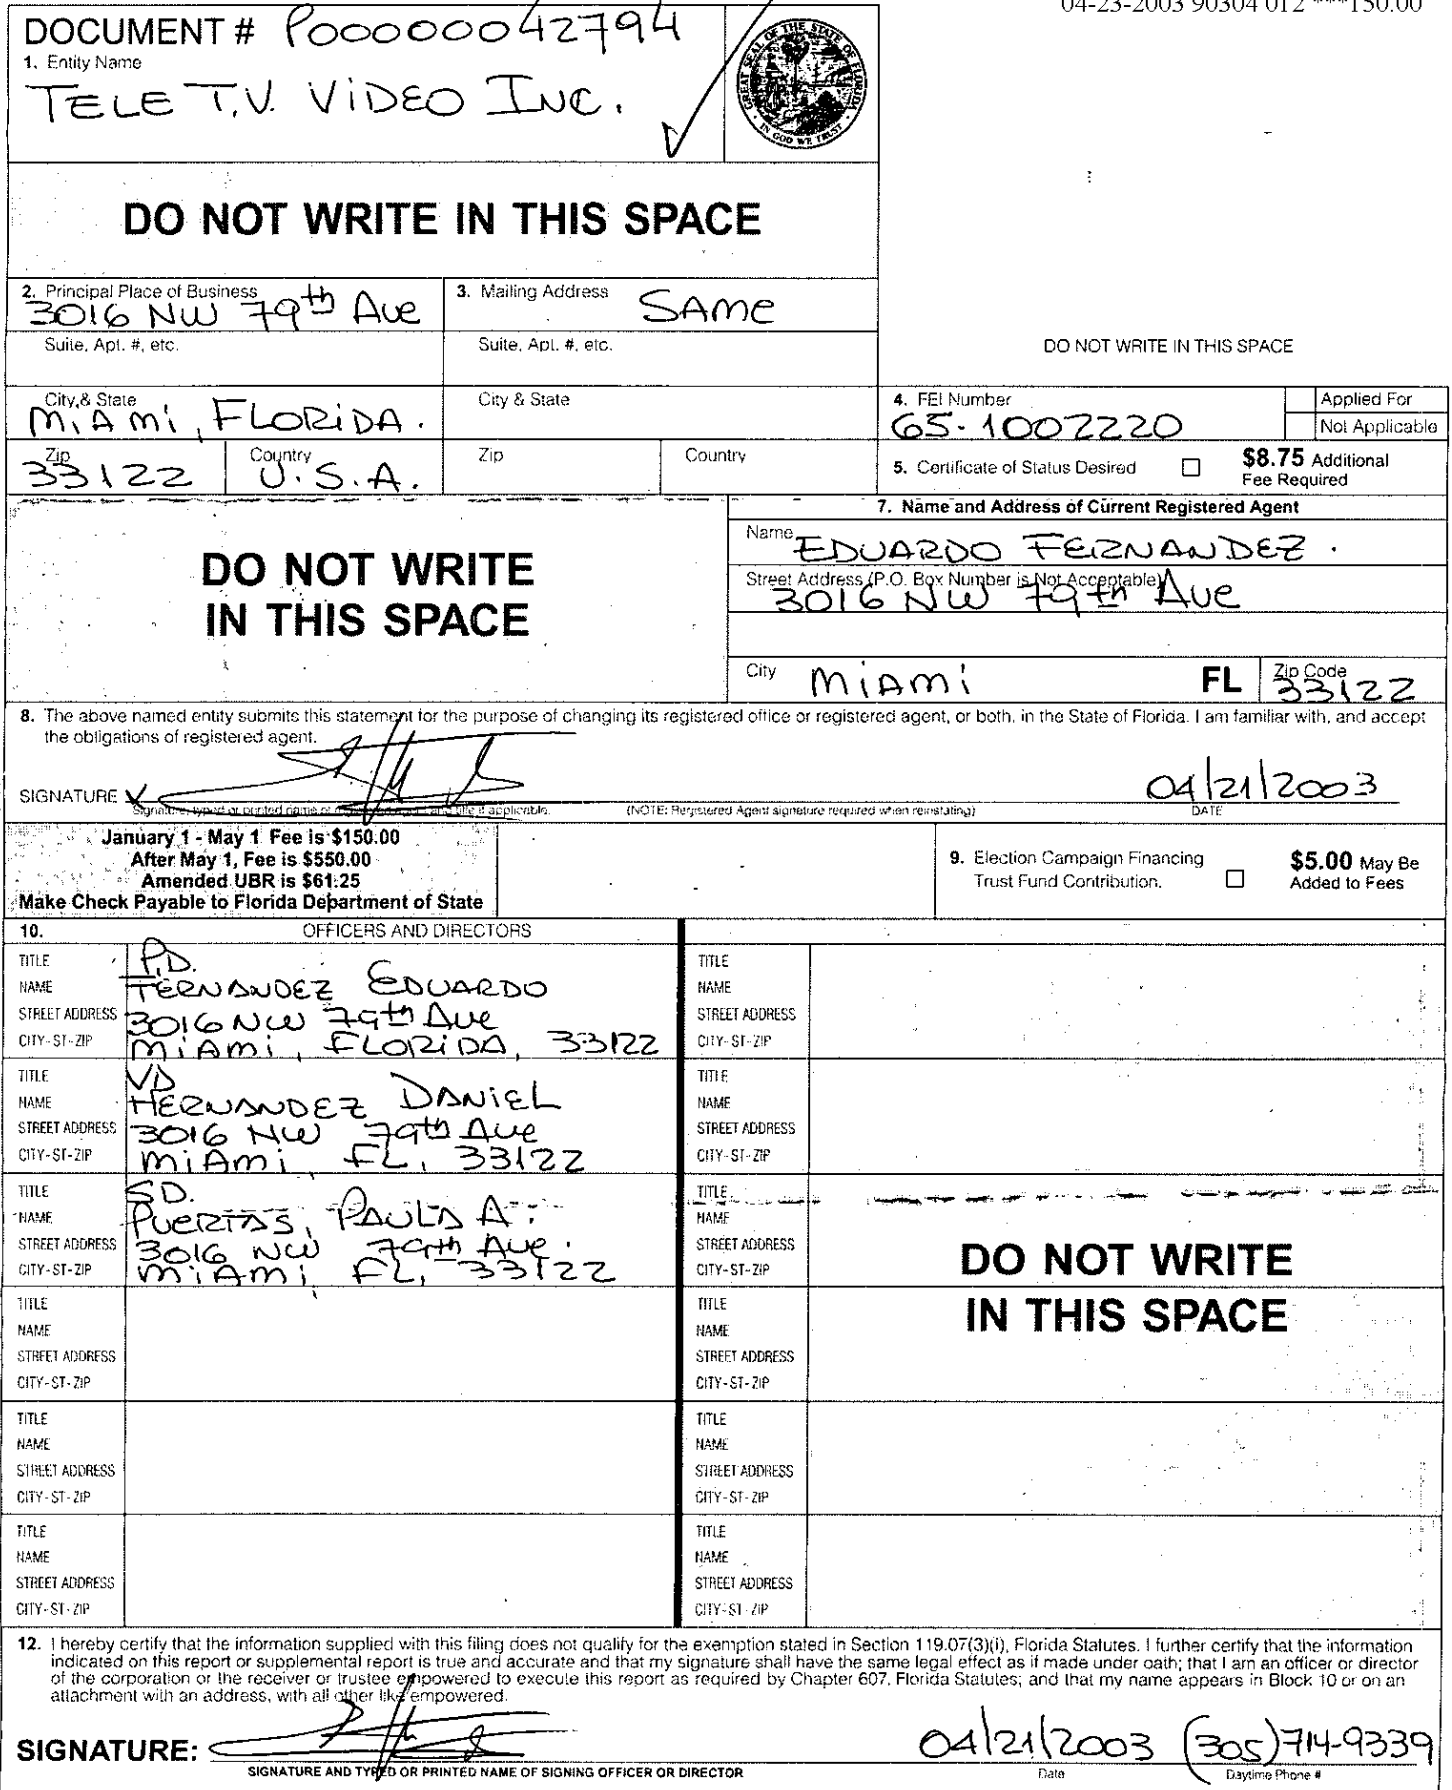 04-23-2003 90304 012 ***150.00
DOCUMENT # P00000042794
1. Entity Name
TELE T.V. VIDEO INC.
GREAT SEAL OF THE STATE OF FLORIDA
IN GOD WE TRUST
DO NOT WRITE IN THIS SPACE
2. Principal Place of Business
3016 NW 79th Ave
3. Mailing Address SAME
Suite, Apt. #, etc.
Suite, Apt. #, etc.
DO NOT WRITE IN THIS SPACE
City & State
MiAmi, FLORiDA.
City & State
4. FEI Number
65-1002220
Applied For
Not Applicable
Zip
33122
Country
U.S.A.
Zip
Country
5. Certificate of Status Desired
$8.75 Additional
Fee Required
DO NOT WRITE
IN THIS SPACE
7. Name and Address of Current Registered Agent
Name EDUARDO FERNANDEZ.
Street Address (P.O. Box Number is Not Acceptable)
3016 NW 79th Ave
City MiAmi FL Zip Code
33122
8. The above named entity submits this statement for the purpose of changing its registered office or registered agent, or both, in the State of Florida. I am familiar with, and accept
the obligations of registered agent.
SIGNATURE
04/21/2003
Signature, typed or printed name of registered agent and title if applicable.
(NOTE: Registered Agent signature required when reinstating)
DATE
January 1 - May 1 Fee is $150.00
After May 1, Fee is $550.00
Amended UBR is $61.25
Make Check Payable to Florida Department of State
9. Election Campaign Financing
Trust Fund Contribution.
$5.00 May Be
Added to Fees
10. OFFICERS AND DIRECTORS
TITLE P.D.
NAME FERNANDEZ EDUARDO
STREET ADDRESS 3016 NW 79th Ave
CITY-ST-ZIP MiAmi, FLORiDA, 33122
TITLE
NAME
STREET ADDRESS
CITY-ST-ZIP
TITLE VD
NAME HERNANDEZ DANiEL
STREET ADDRESS 3016 NW 79th Ave
CITY-ST-ZIP MiAmi, FL, 33122
TITLE
NAME
STREET ADDRESS
CITY-ST-ZIP
TITLE SD.
NAME PUERTAS, PAULA A.
STREET ADDRESS 3016 NW 79th Ave.
CITY-ST-ZIP MiAmi, FL, 33122
TITLE
NAME
STREET ADDRESS
CITY-ST-ZIP
DO NOT WRITE
IN THIS SPACE
TITLE
NAME
STREET ADDRESS
CITY-ST-ZIP
TITLE
NAME
STREET ADDRESS
CITY-ST-ZIP
TITLE
NAME
STREET ADDRESS
CITY-ST-ZIP
TITLE
NAME
STREET ADDRESS
CITY-ST-ZIP
TITLE
NAME
STREET ADDRESS
CITY-ST-ZIP
TITLE
NAME
STREET ADDRESS
CITY-ST-ZIP
12. I hereby certify that the information supplied with this filing does not qualify for the exemption stated in Section 119.07(3)(i), Florida Statutes. I further certify that the information
indicated on this report or supplemental report is true and accurate and that my signature shall have the same legal effect as if made under oath; that I am an officer or director
of the corporation or the receiver or trustee empowered to execute this report as required by Chapter 607, Florida Statutes; and that my name appears in Block 10 or on an
attachment with an address, with all other like empowered.
SIGNATURE:
04/21/2003 (305)714-9339
SIGNATURE AND TYPED OR PRINTED NAME OF SIGNING OFFICER OR DIRECTOR
Date
Daytime Phone #